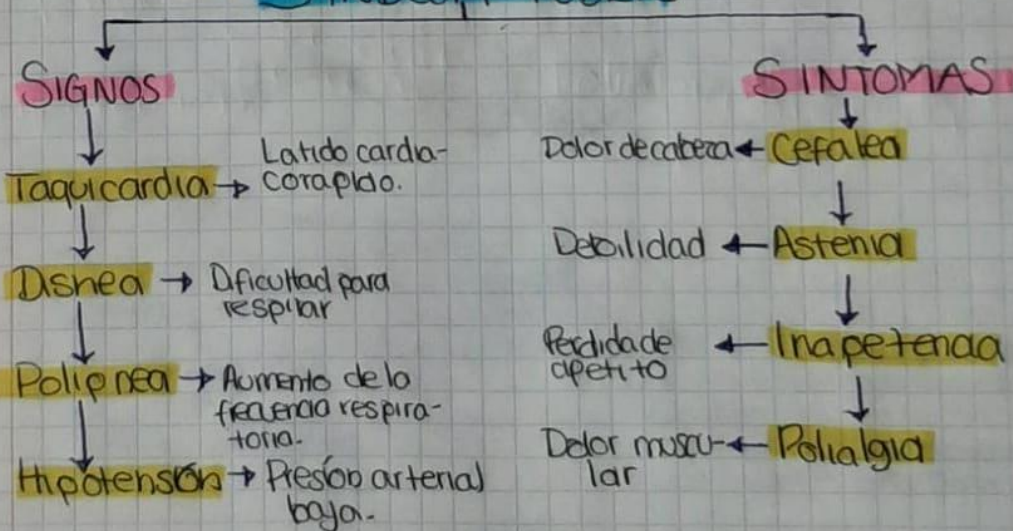 SIGNOS
Taquicardia → Latido cardia-
corapido.
Disnea → Dificultad para
respirar
Polipnea → Aumento de la
frecuencia respira-
toria.
Hipotensión → Presión arterial
baja.
SINTOMAS
Dolor de cabeza ← Cefalea
Debilidad ← Astenia
Perdida de
apetito ← Inapetencia
Dolor muscu-
lar ← Polialgia